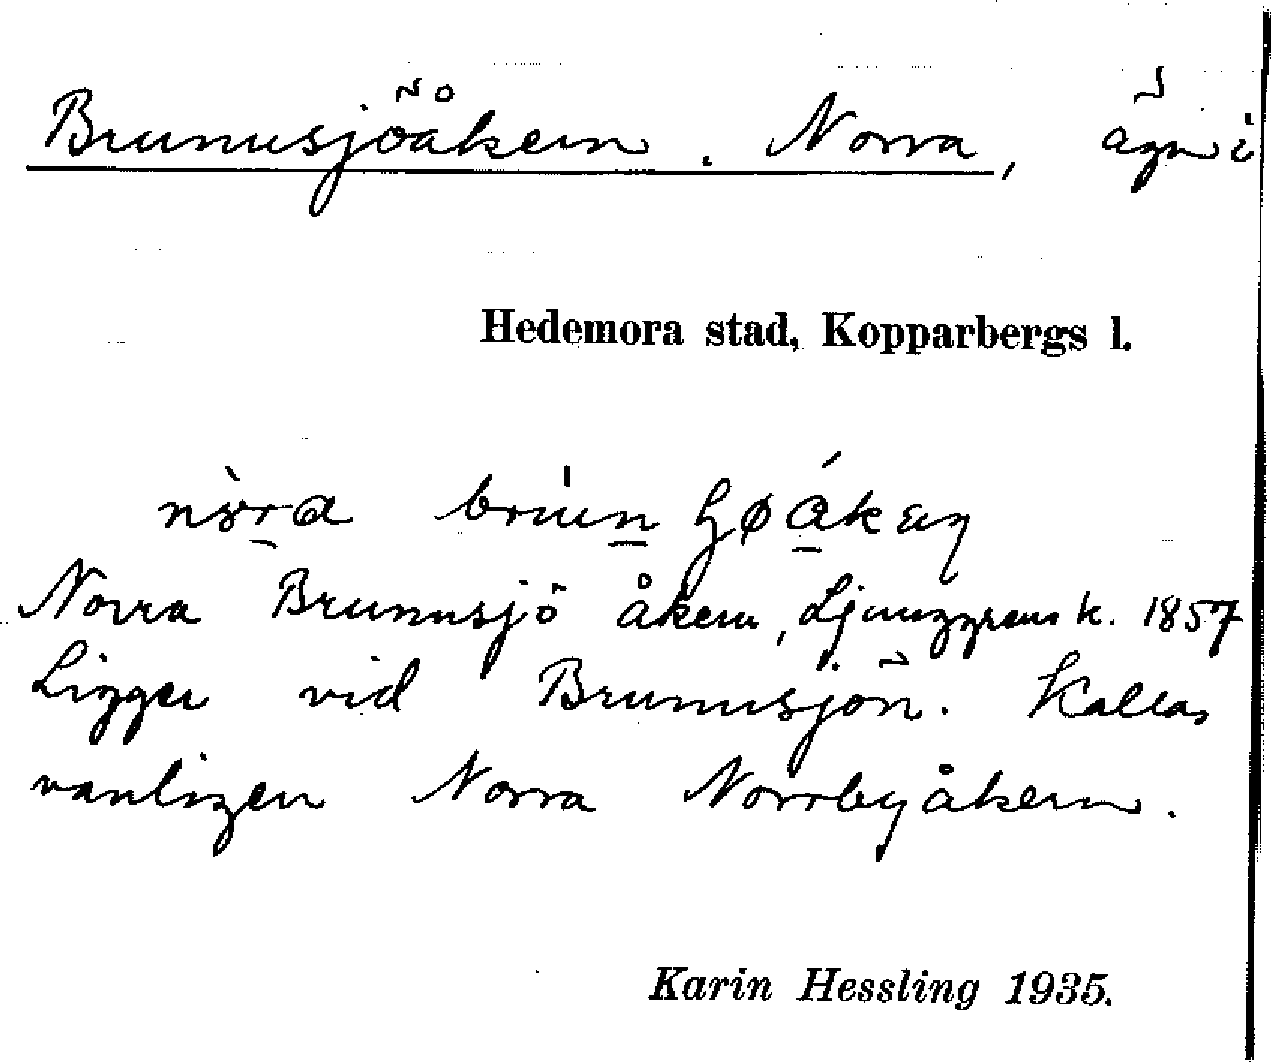 Brunnsjöåkern. Norra, ägn i
Hedemora stad, Kopparbergs l.
Norra Brunnsjö åkern, Ljunggrens k. 1857
Ligger vid Brunnsjön. Kallas
vanligen Norra Norrbyåkern.
Karin Hessling 1935.